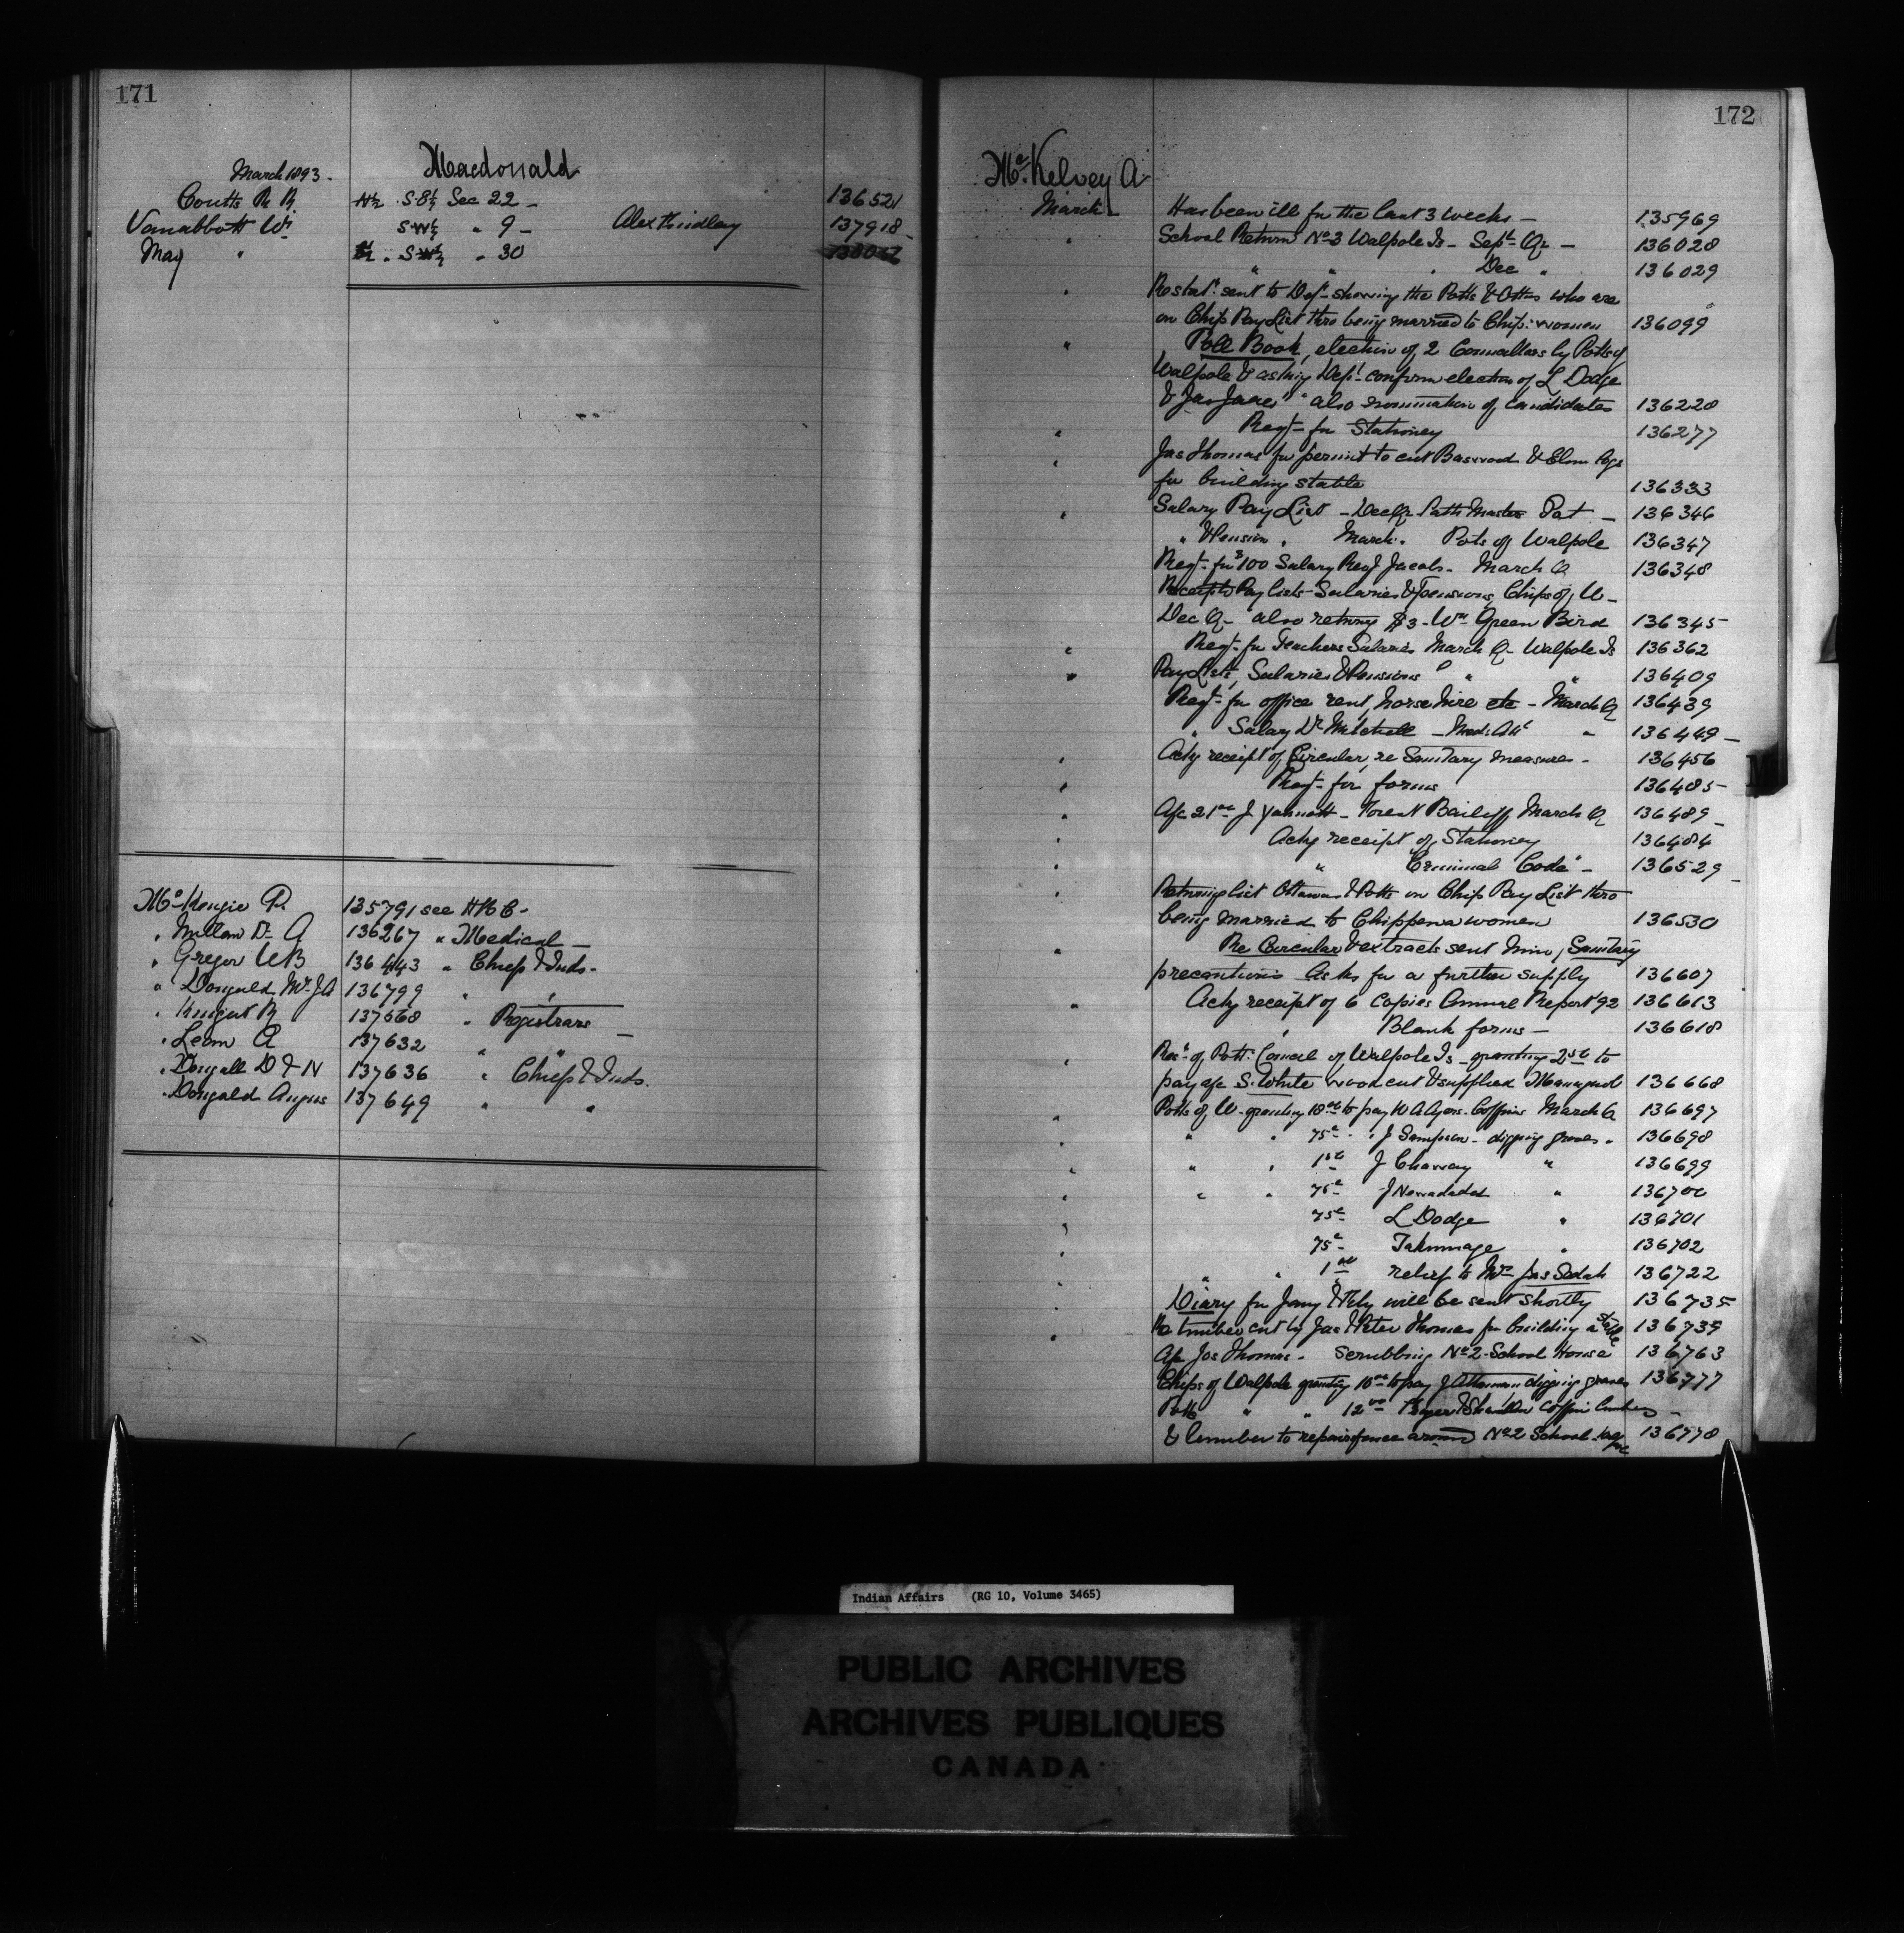 171
Macdonald
March 1893.
Coutts R R N½ S.E¼ Sec 22 - 136521
Vanabbott W. SW¼ " 9 - Alex Findlay 137918
May " " SW¼ " 30
McKenzie P. 135791 see H B C -
" Dr A 136267 " Medical -
" Gregor W B 136443 " Chiefs & Inds -
" Dougald Mrs J A 136799 " "
" Knight R 137568 " Registrars -
" Lean A 137632 " "
" Dougall D & N 137636 " Chiefs & Inds.
" Dougald Angus 137649 " "
172
McKelvey A
March Has been ill for the last 3 weeks - 135969
" School Return No 3 Walpole Is - Sept Qr - 136028
" " " Dec " 136029
" Re stat. sent to Dept showing the Potts & Ottas who are
on Chip Pay List thro being married to Chip. women 136099
" Poll Book, election of 2 Councillors by Potts of
Walpole & asking Dept confirm election of L Dodge
& Jas " also nomination of candidates 136228
" Reqt for Stationery 136277
" Jas Thomas for permit to cut Basswood & Elm logs
for building stable 136333
" Salary Pay List - Dec Qr Path Master Pat - 136346
" & Pension " March. Potts of Walpole 136347
Reqt for $100 Salary Rev J Jacobs - March Q 136348
Receipted Pay Lists - Salaries & Pensions, Chips of W -
Dec Q - also returns $3 - Wm Green Bird 136345
" Reqt for Teachers Salaries March Q - Walpole Is 136362
" Pay Lists, Salaries & Pensions " " " 136409
Reqt for office rent, horse hire etc - March Q 136439
" Salary Dr Mitchell - Med. Att " 136449 -
" Ackg receipt of Circular, re Sanitary measures - 136456
" Reqt for forms 136485
" A/c 21.00 J - Forest Bailiff March Q 136489 -
" Ackg receipt of Stationery 136484
" " Criminal Code" - 136529 -
" Returning list Ottawas & Potts on Chip Pay List thro
being married to Chippewa women 136530
" Re Circular & extracts sent him, Sanitary
precautions asks for a further supply 136607
" Ackg receipt of 6 copies Annual Report '92 136613
" Blank forms - 136618
" Resn of Pott. Council of Walpole Is - granting 2.50 to
pay a/c S. White wood cut & supplied 136668
" Potts of W - granting 18.00 to pay W A Ayers - Coffins March Q 136697
" " " 75c " J Sampson - digging graves " 136698
" " " 1.50 J " 136699
" " " 75c J " 136700
" 75c L Dodge " 136701
" 75c " 136702
" " " 1.00 relief to Mrs Jas Sedah 136722
" Diary for Jany & Feby will be sent shortly 136735
" Re timber cut by Jas & Peter Thomas for building a stable 136739
A/c Jos Thomas - Scrubbing No 2 School House 136763
Chips of Walpole granting 10.00 to pay J digging graves 136777
Potts " " 12.00 coffin lumber -
& lumber to repair fence around No 2 School 136778
Indian Affairs (RG 10, Volume 3465)
PUBLIC ARCHIVES
ARCHIVES PUBLIQUES
CANADA